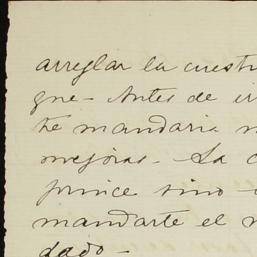 arreglar la cuesti
que - Antes de ir
te mandaria
mejoras - La c
prince sino
mandarte el
dado -